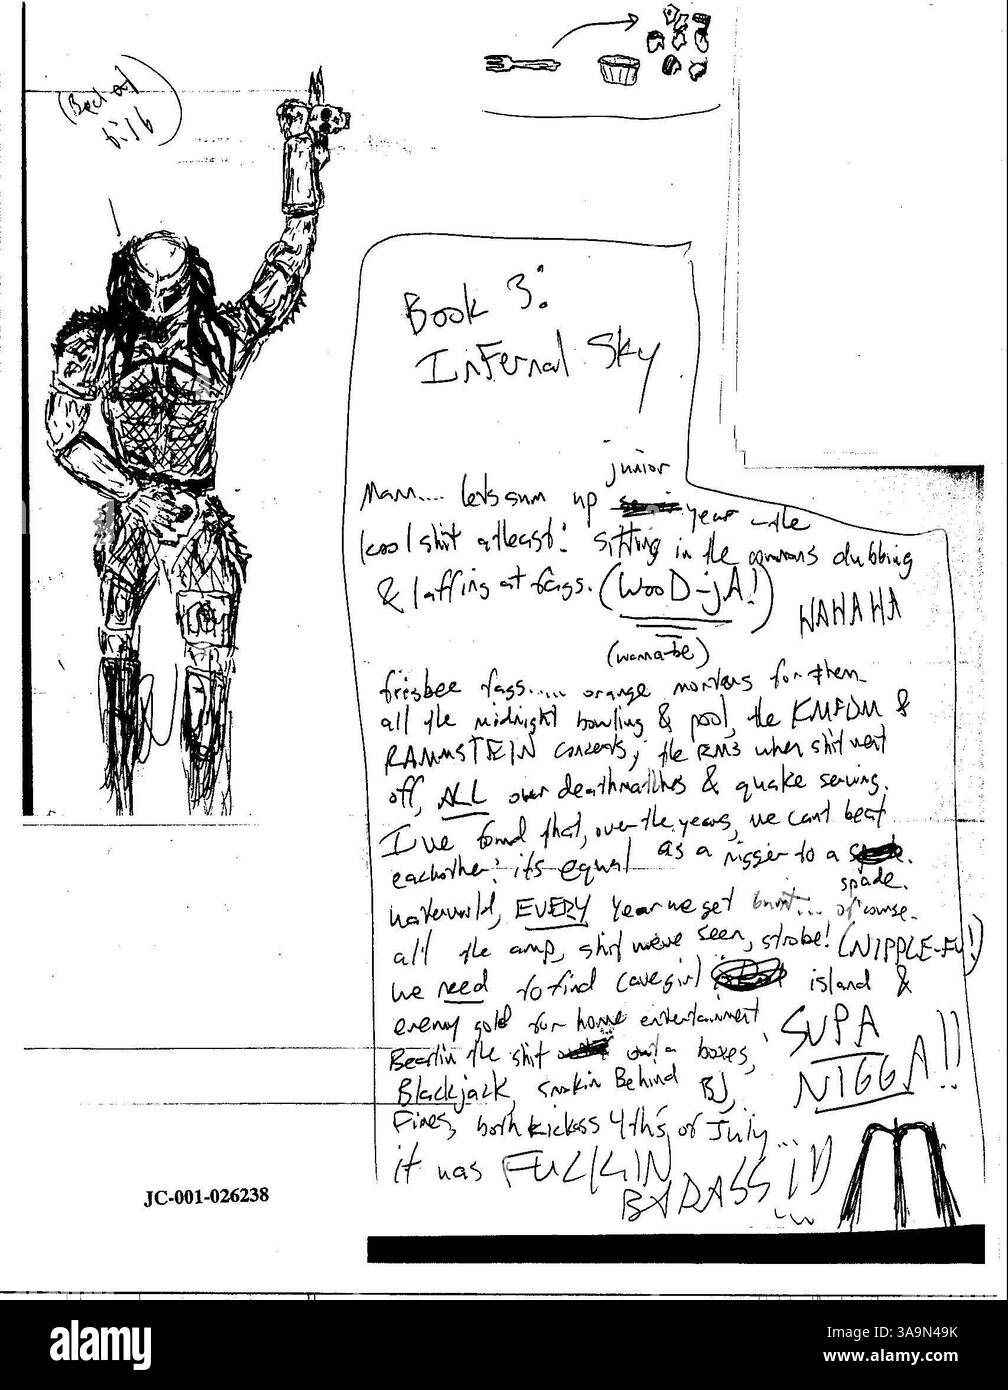 (Back of
Book 3:
Infernal Sky
junior
Man.... lets sum up year w the
kool shit atleast: sitting in the commons clubbing
& laffing at fags. (WooD-jA!)
HAHAHA
(wanna-be)
frisbee fags..... orange mortars for them
all the midnight bowling & pool, the KMFDM &
RAMMSTEIN concerts, the RM3 when shit went
off, ALL over deathmatches & quake
I've found that, over the years, we cant beat
eachother: its equal as a nigger to a
spade.
waterworld, EVERY year we get ... of course.
all the amp, shit we've seen, strobe! (NIPPLE-FU!)
we need to find cavegirl island &
enemy gold for home entertainment
Beatin the shit outa boxes,
SUPA
NIGGA!!
Blackjack, smokin Behind BJ,
Fires, both kickass 4ths of July...
it was FUCKIN
BADASS!!!
JC-001-026238
alamy
Image ID: 3A9N49K
www.alamy.com